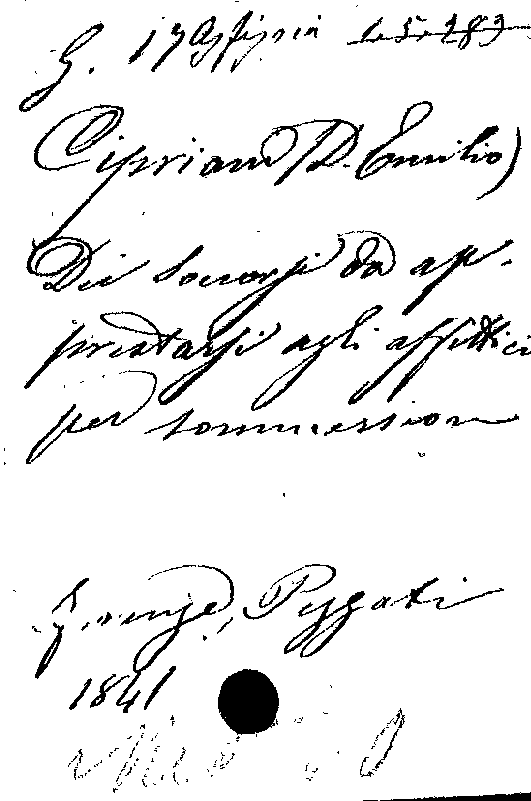 G. 17 Asfissia 1.5.283
Cipriani (D. Emilio)
Dei soccorsi da ap-
prestarsi agli asfittici
per sommersion
Firenze, Pezzati
1841